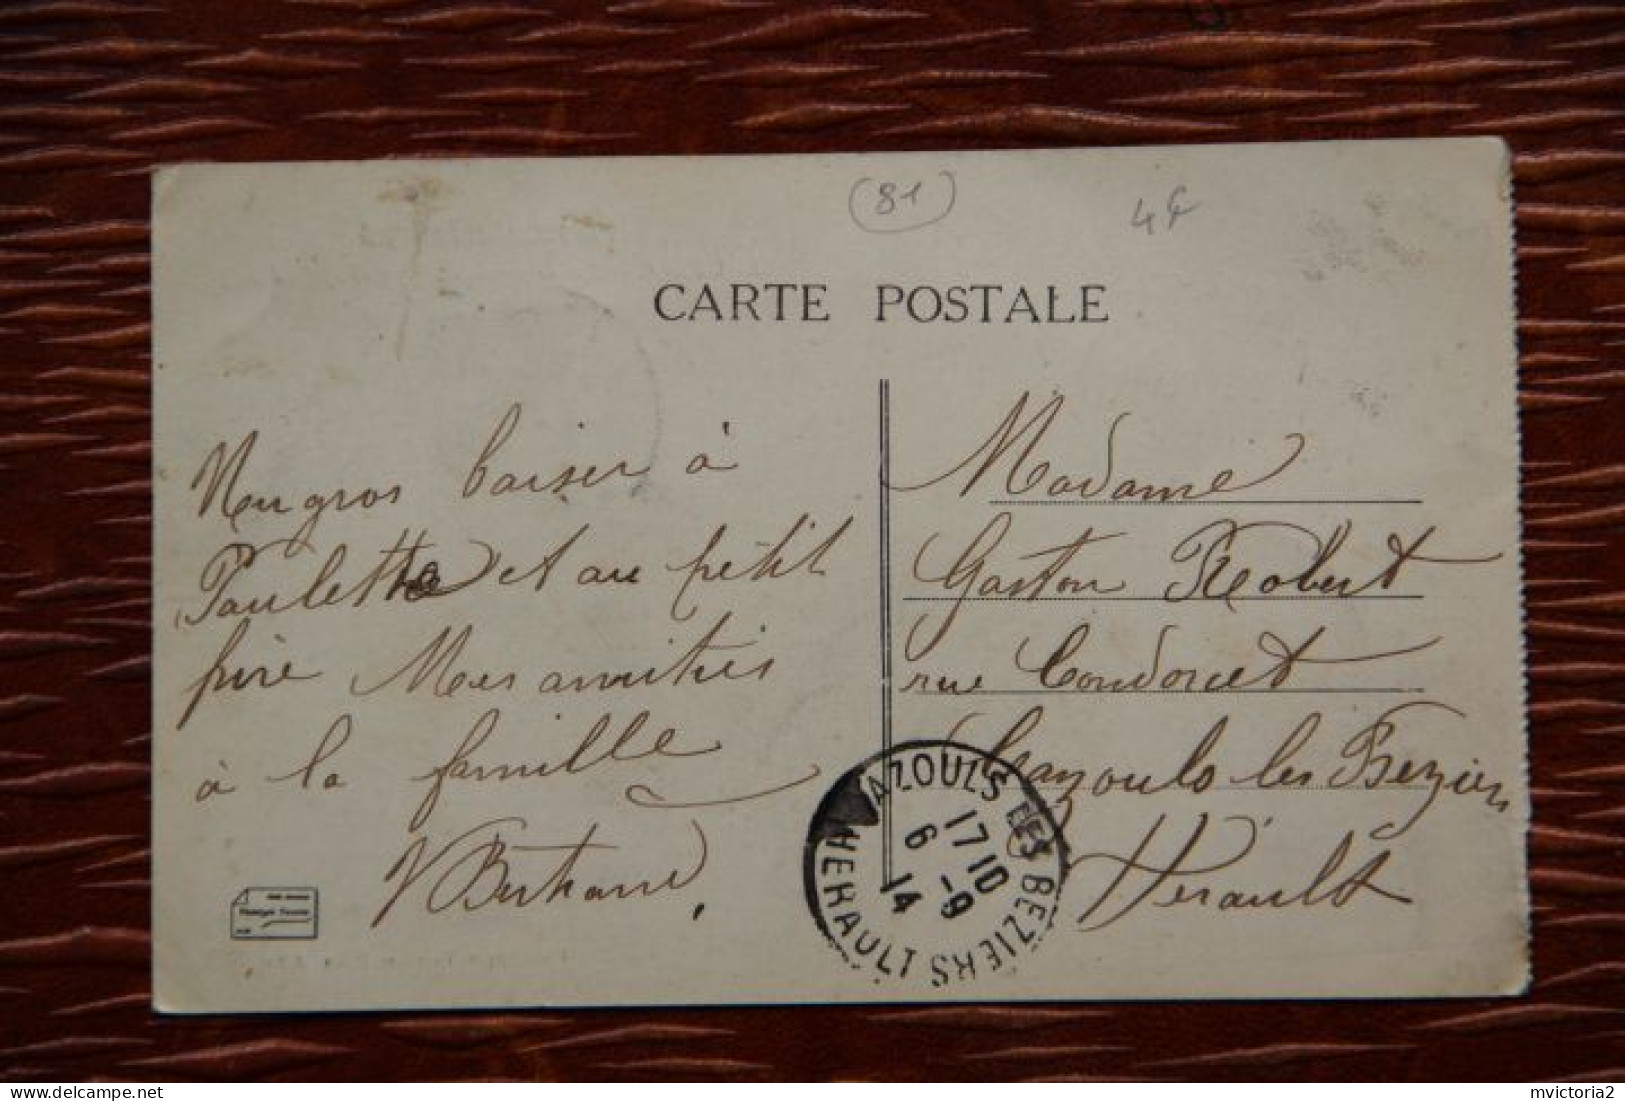 (81)
4€
CARTE POSTALE
Un gros baiser à
Paulette et au petit
père Mes amitiés
à la famille
V Bertrand,
Madame
Gaston Robert
rue Condorcet
Cazouls les Beziers
Hérault
CAZOULS LES BEZIERS
17 10
6 -9
14
HERAULT
mvictoria2